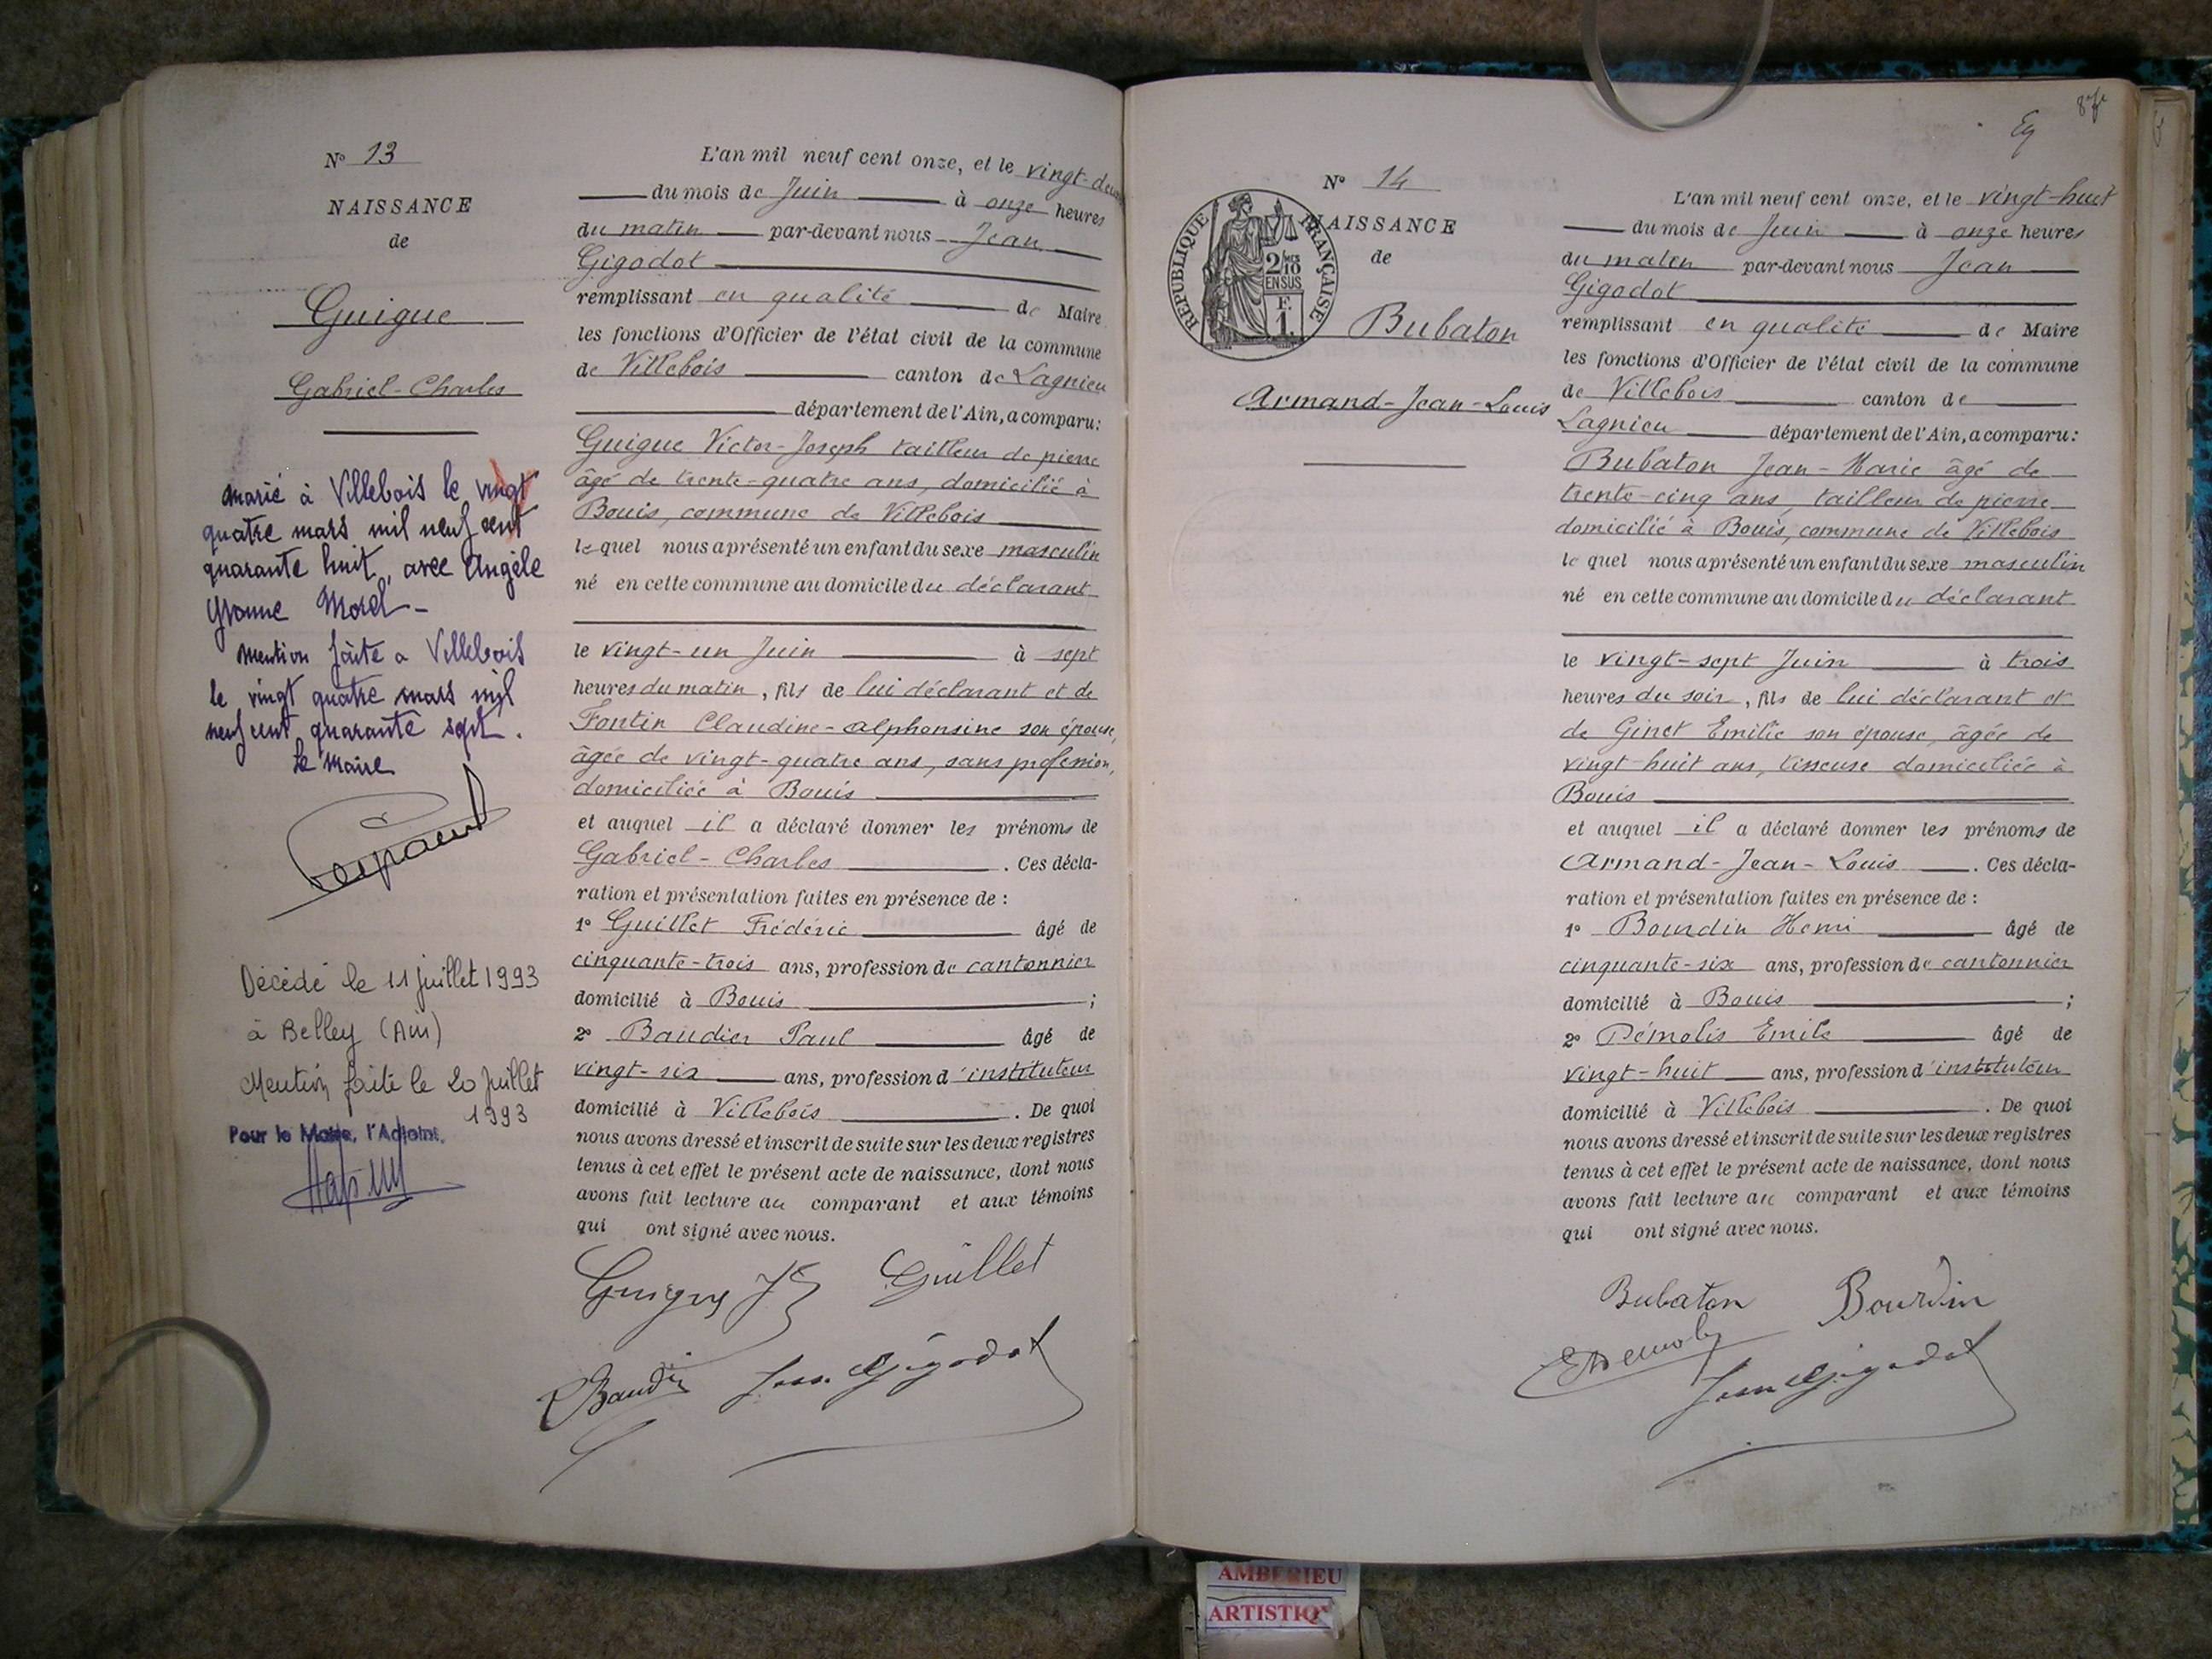 N° 13
NAISSANCE
de
Guigue
Gabriel-Charles
Marié à Villebois le vingt
quatre mars mil neuf cent
quarante huit, avec Angèle
Yvonne Morel -
Mention faite a Villebois
le vingt quatre mars mil
neuf cent quarante sept.
Le Maire
Décédé le 11 juillet 1993
à Belley (Ain)
Mention faite le 20 juillet
1993
Pour le Maire, l'Adjoint,
L'an mil neuf cent onze, et le vingt-deux
du mois de Juin à onze heures
du matin par-devant nous Jean
Gigodot
remplissant en qualité de Maire
les fonctions d'Officier de l'état civil de la commune
de Villebois canton de Lagnieu
département de l'Ain, a comparu:
Guigue Victor-Joseph tailleur de pierre
âgé de trente-quatre ans, domicilié à
Bouis, commune de Villebois
lequel nous a présenté un enfant du sexe masculin
né en cette commune au domicile du déclarant
le vingt-un Juin à sept
heures du matin, fils de lui déclarant et de
Fontin Claudine-Alphonsine son épouse,
âgée de vingt-quatre ans, sans profession,
domiciliée à Bouis
et auquel il a déclaré donner les prénoms de
Gabriel-Charles. Ces décla-
ration et présentation faites en présence de :
1° Guillet Frédéric âgé de
cinquante-trois ans, profession de cantonnier
domicilié à Bouis ;
2° Baudier Paul âgé de
vingt-six ans, profession d'instituteur
domicilié à Villebois. De quoi
nous avons dressé et inscrit de suite sur les deux registres
tenus à cet effet le présent acte de naissance, dont nous
avons fait lecture au comparant et aux témoins
qui ont signé avec nous.
Guigue Guillet
Baudier Jean Gigodot
N° 14
NAISSANCE
de
RÉPUBLIQUE FRANÇAISE
2/10
EN SUS
F.
1.
Bubaton
Armand-Jean-Louis
L'an mil neuf cent onze, et le vingt-huit
du mois de Juin à onze heures
du matin par-devant nous Jean
Gigodot
remplissant en qualité de Maire
les fonctions d'Officier de l'état civil de la commune
de Villebois canton de
Lagnieu département de l'Ain, a comparu:
Bubaton Jean-Marie âgé de
trente-cinq ans, tailleur de pierre
domicilié à Bouis, commune de Villebois
lequel nous a présenté un enfant du sexe masculin
né en cette commune au domicile du déclarant
le vingt-sept Juin à trois
heures du soir, fils de lui déclarant et
de Ginet Emilie son épouse, âgée de
vingt-huit ans, tisseuse domiciliée à
Bouis
et auquel il a déclaré donner les prénoms de
Armand-Jean-Louis. Ces décla-
ration et présentation faites en présence de :
1° Bourdin Henri âgé de
cinquante-six ans, profession de cantonnier
domicilié à Bouis ;
2° Démolis Emile âgé de
vingt-huit ans, profession d'instituteur
domicilié à Villebois. De quoi
nous avons dressé et inscrit de suite sur les deux registres
tenus à cet effet le présent acte de naissance, dont nous
avons fait lecture au comparant et aux témoins
qui ont signé avec nous.
Bubaton Bourdin
Jean Gigodot
AMBERIEU
ARTISTIQ